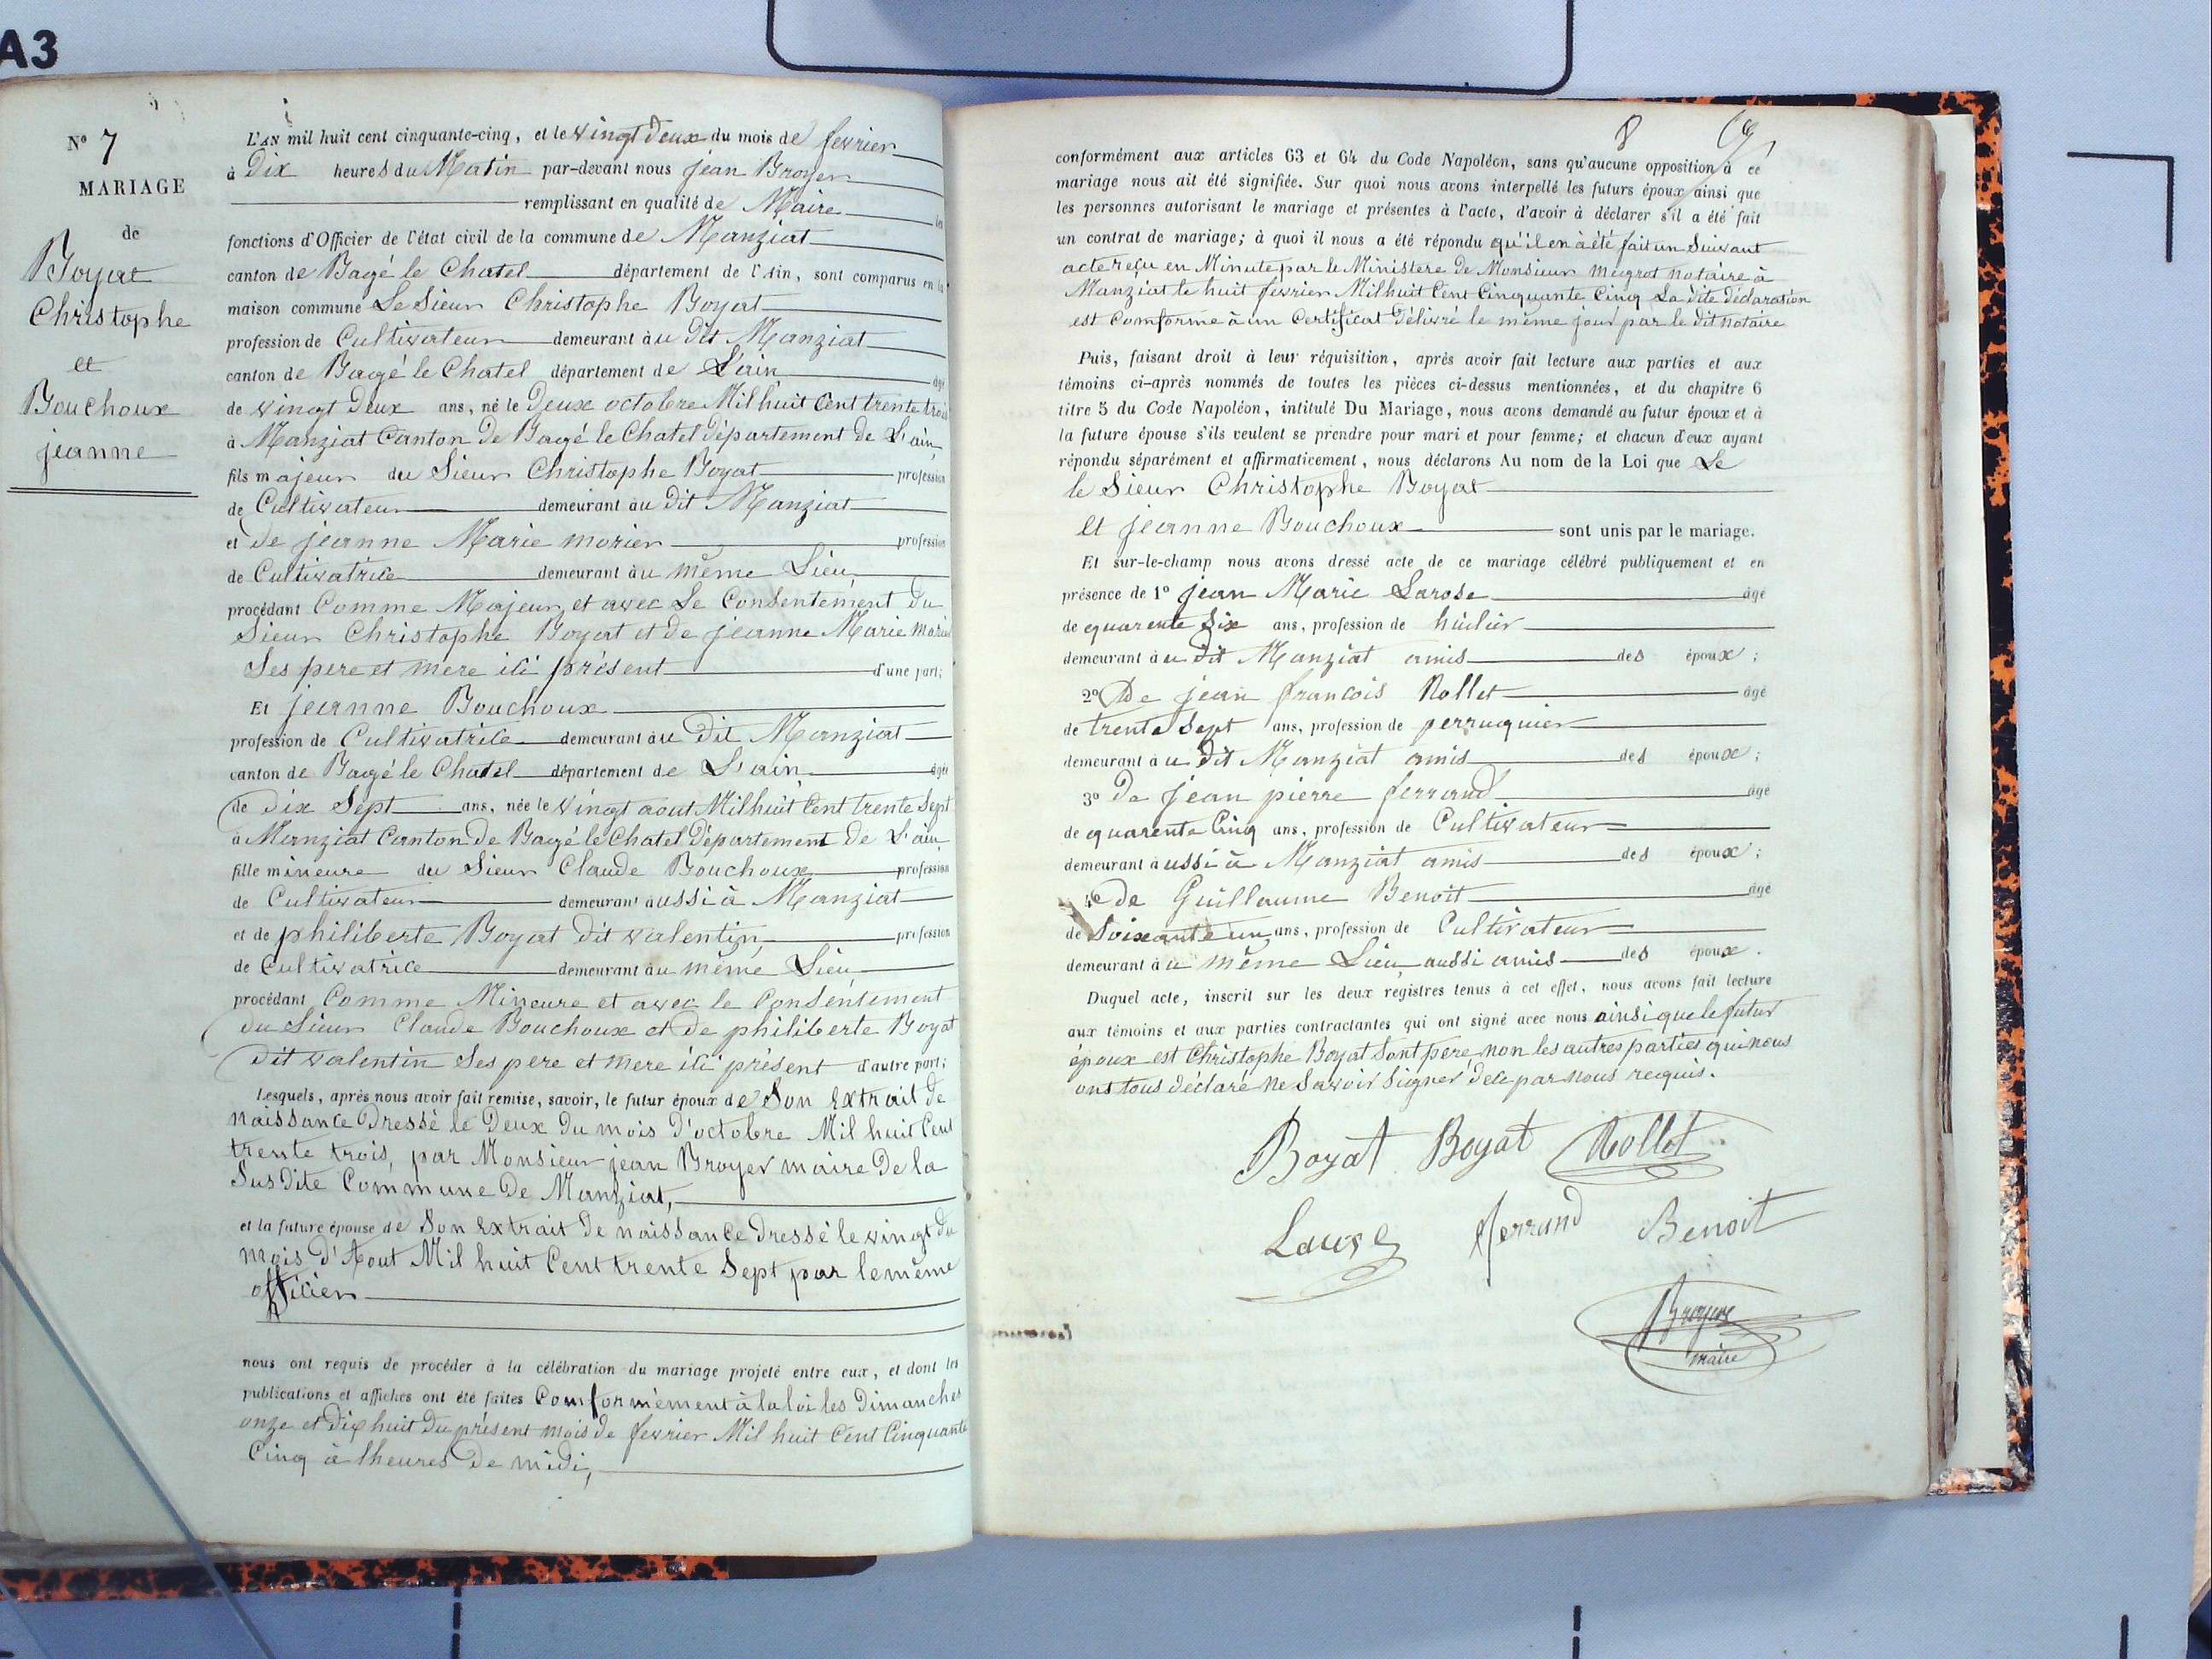 A3
N° 7
MARIAGE
de
Boyat
Christophe
et
Bouchoux
jeanne
L'AN mil huit cent cinquante-cinq, et le vingt deux du mois de fevrier
à Dix heures du Matin par-devant nous jean Broyer
remplissant en qualité de Maire les
fonctions d'Officier de l'état civil de la commune de Manziat
canton de Bagé le Chatel département de l'Ain, sont comparus en la
maison commune Le Sieur Christophe Boyat
profession de Cultivateur demeurant au dit Manziat
canton de Bagé le Chatel département de L'ain âgé
de vingt Deux ans, né le Deux octobre Mil huit Cent trente trois
à Manziat Canton De Bagé le Chatel Département De L'ain
fils majeur du Sieur Christophe Boyat profession
de Cultivateur demeurant au Dit Manziat
et de jeanne Marie morier profession
de Cultivatrice demeurant au même Lieu
procédant Comme Majeur, et avec Le Consentement Du
Sieur Christophe Boyat et De jeanne Marie morier
Ses pere et mere ici présent d'une part;
Et jeanne Bouchoux
profession de Cultivatrice demeurant au Dit Manziat
canton de Bagé le Chatel département de L'ain âgée
de Dix Sept ans, née le vingt aout Mil huit Cent trente Sept
à Manziat Canton De Bagé le Chatel Département De L'ain
fille mineure du Sieur Claude Bouchoux profession
de Cultivateur demeurant aussi à Manziat
et de philiberte Boyat Dit valentin profession
de Cultivatrice demeurant au même Lieu
procédant Comme Mineure et avec le Consentement
du Sieur Claude Bouchoux et De philiberte Boyat
Dit valentin Ses pere et mere ici présent d'autre part;
Lesquels, après nous avoir fait remise, savoir, le futur époux de Son Extrait De
naissance Dressé le Deux Du mois D'octobre Mil huit Cent
trente trois, par Monsieur jean Broyer maire De la
Sus Dite Commune De Manziat,
et la future épouse de Son Extrait De naissance Dressé le vingt Du
mois d'Aout Mil huit Cent trente Sept par le même
officier
nous ont requis de procéder à la célébration du mariage projeté entre eux, et dont les
publications et affiches ont été faites Comformément à la loi les Dimanches
onze et Dix huit Du présent mois De fevrier Mil huit Cent Cinquante
Cinq à lheures De midi,
8
conformément aux articles 63 et 64 du Code Napoléon, sans qu'aucune opposition à ce
mariage nous ait été signifiée. Sur quoi nous avons interpellé les futurs époux ainsi que
les personnes autorisant le mariage et présentes à l'acte, d'avoir à déclarer s'il a été fait
un contrat de mariage; à quoi il nous a été répondu qu'il en à été fait un Suivant
acte reçu en Minute par le Ministere De Monsieur megrot notaire à
Manziat le huit fevrier Mil huit Cent Cinquante Cinq La Dite Déclaration
est Comforme à un Certificat Délivré le même jour par le Dit notaire
Puis, faisant droit à leur réquisition, après avoir fait lecture aux parties et aux
témoins ci-après nommés de toutes les pièces ci-dessus mentionnées, et du chapitre 6
titre 5 du Code Napoléon, intitulé Du Mariage, nous avons demandé au futur époux et à
la future épouse s'ils veulent se prendre pour mari et pour femme; et chacun d'eux ayant
répondu séparément et affirmativement, nous déclarons Au nom de la Loi que Le
le Sieur Christophe Boyat
et jeanne Bouchoux sont unis par le mariage.
Et sur-le-champ nous avons dressé acte de ce mariage célébré publiquement et en
présence de 1° jean Marie Larose âgé
de quarente Six ans, profession de huilier
demeurant au Dit Manziat amis des époux;
2° De jean francois Rollet âgé
de trente Sept ans, profession de perruquier
demeurant au Dit Manziat amis des époux;
3° De jean pierre ferrand âgé
de quarente Cinq ans, profession de Cultivateur
demeurant aussi à Manziat amis des époux;
4° de Guillaume Benoit âgé
de Soixante un ans, profession de Cultivateur
demeurant au même Lieu aussi amis des époux.
Duquel acte, inscrit sur les deux registres tenus à cet effet, nous avons fait lecture
aux témoins et aux parties contractantes qui ont signé avec nous ainsi que le futur
époux est Christophe Boyat Sont pere, non les autres parties qui nous
ont tous déclaré ne Savoir Signer de ce par nous requis.
Boyat Boyat Rollet
Larose ferrand Benoit
Broyer
maire